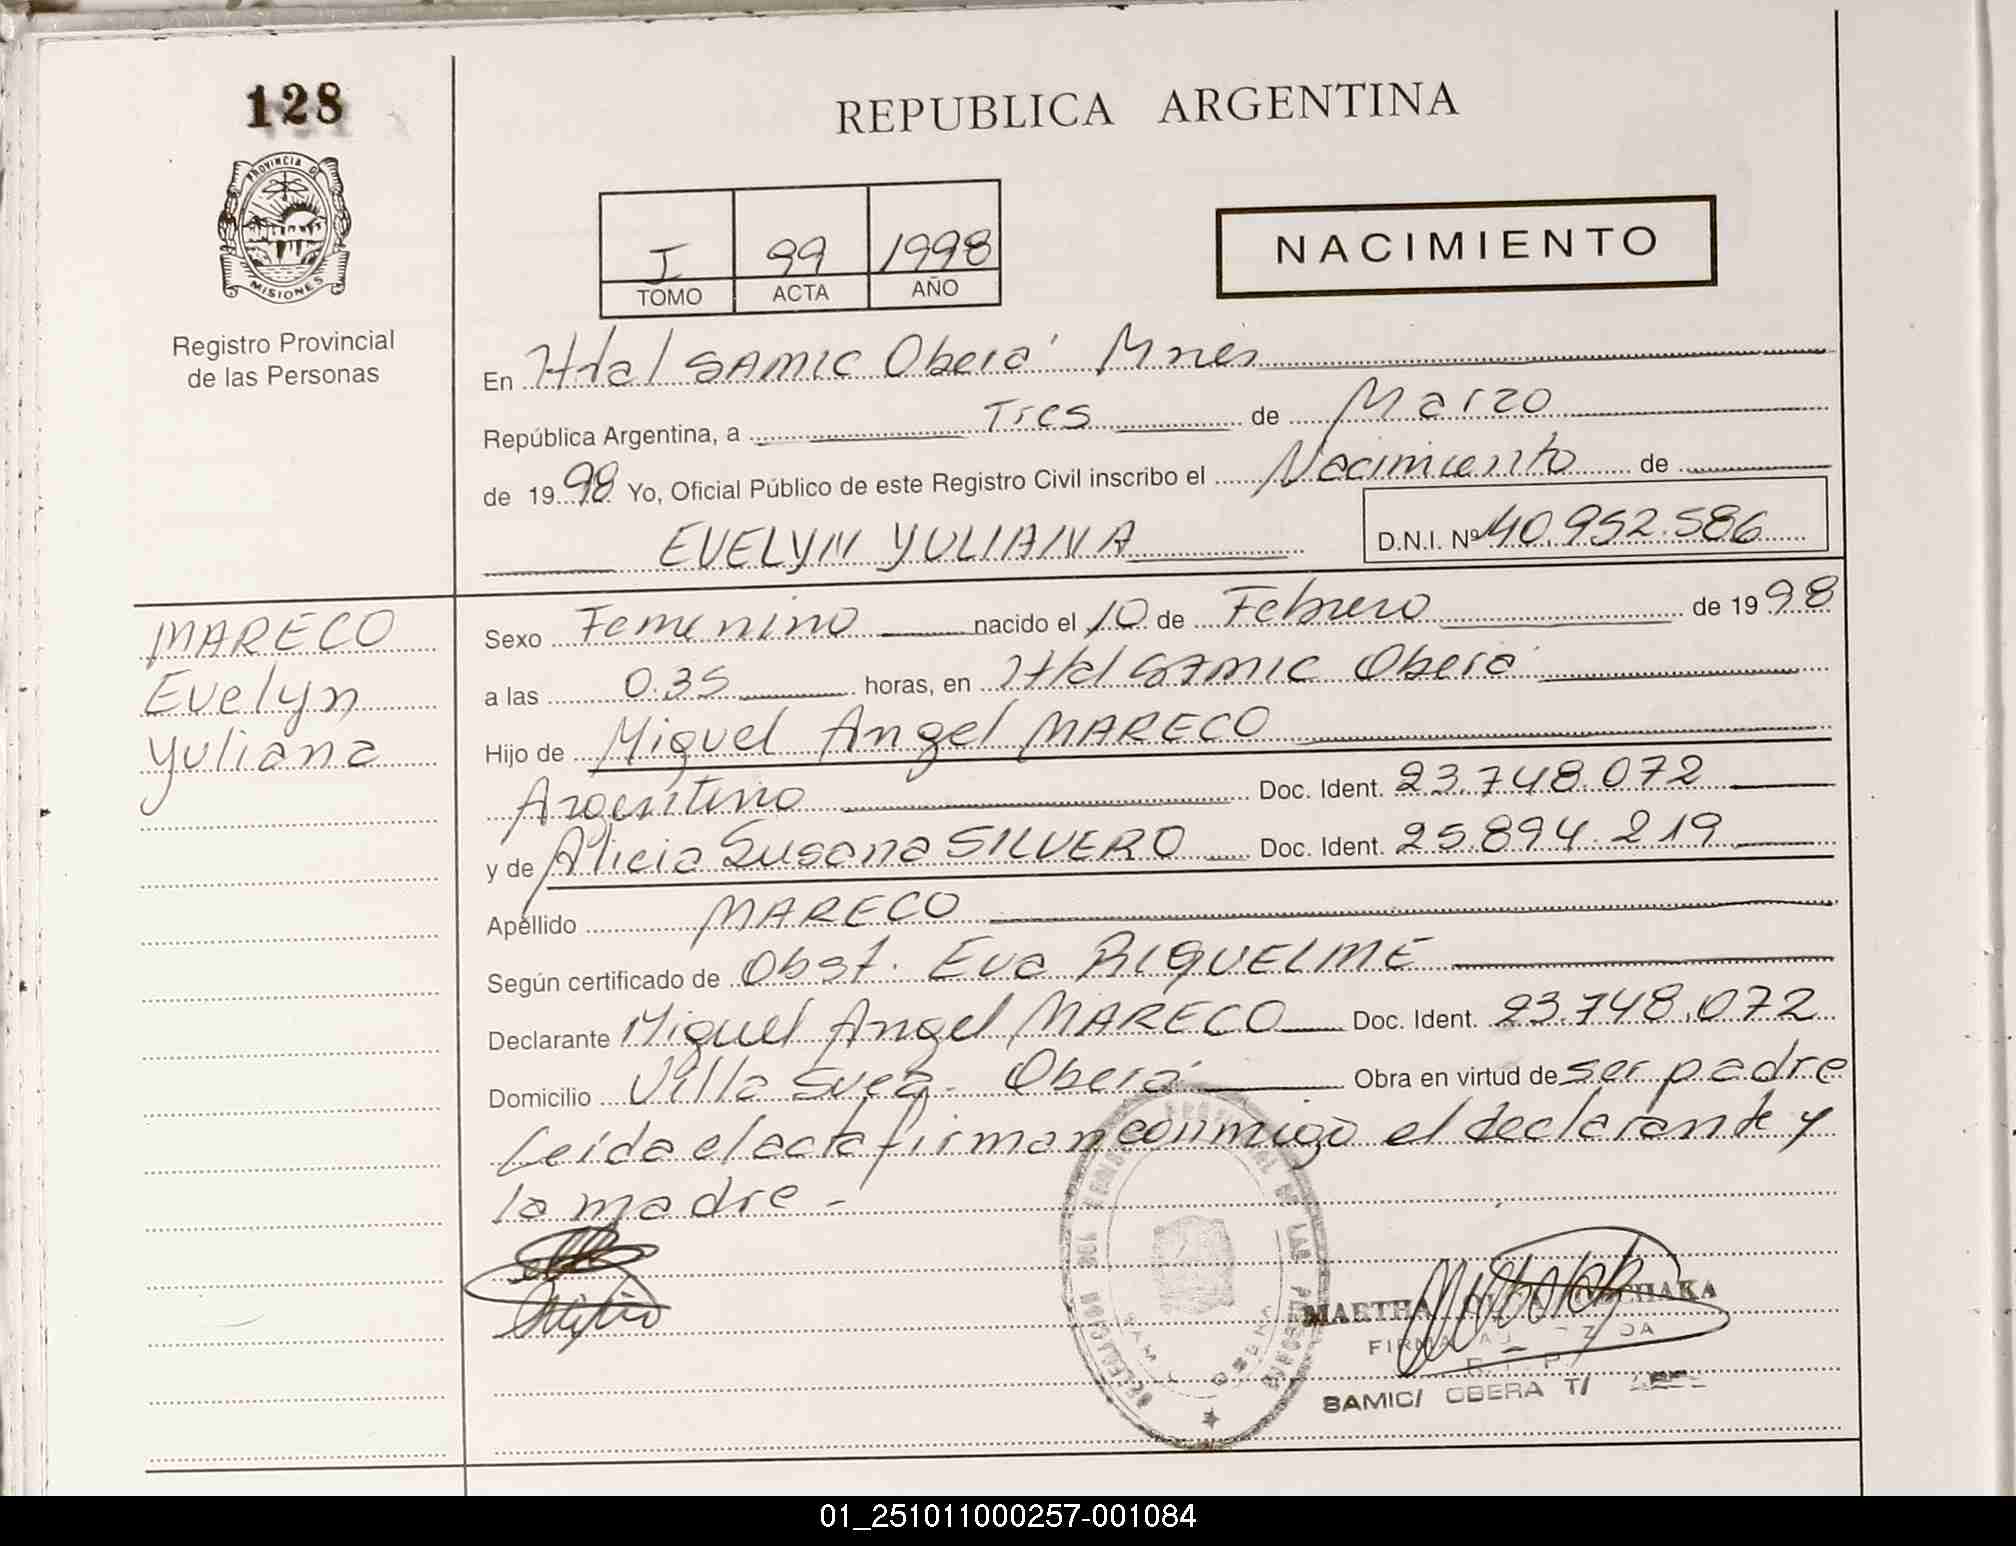 128
REPUBLICA ARGENTINA
PROVINCIA DE
MISIONES
Registro Provincial
de las Personas
I 99 1998
TOMO ACTA AÑO
NACIMIENTO
En Htal SAMIC Oberá Mnes
República Argentina, a Tres de Marzo
de 1998 Yo, Oficial Público de este Registro Civil inscribo el Nacimiento de
EVELYN YULIANA D.N.I. Nº 40.952.586
MARECO
Evelyn
Yuliana
Sexo Femenino nacido el 10 de Febrero de 1998
a las 0.35 horas, en Htal SAMIC Oberá
Hijo de Miguel Angel MARECO
Argentino Doc. Ident. 23.748.072
y de Alicia Susana SILVERO Doc. Ident. 25.894.219
Apéllido MARECO
Según certificado de Obst. Eva RIQUELME
Declarante Miguel Angel MARECO Doc. Ident. 23.748.072
Domicilio Villa Svea - Oberá Obra en virtud de ser padre
Leida el acta firman conmigo el declarante y
la madre -
DELEGACION DEL REGISTRO PROVINCIAL DE LAS PERSONAS
MARTHA
FIRMA
SAMIC/ OBERA
01_251011000257-001084